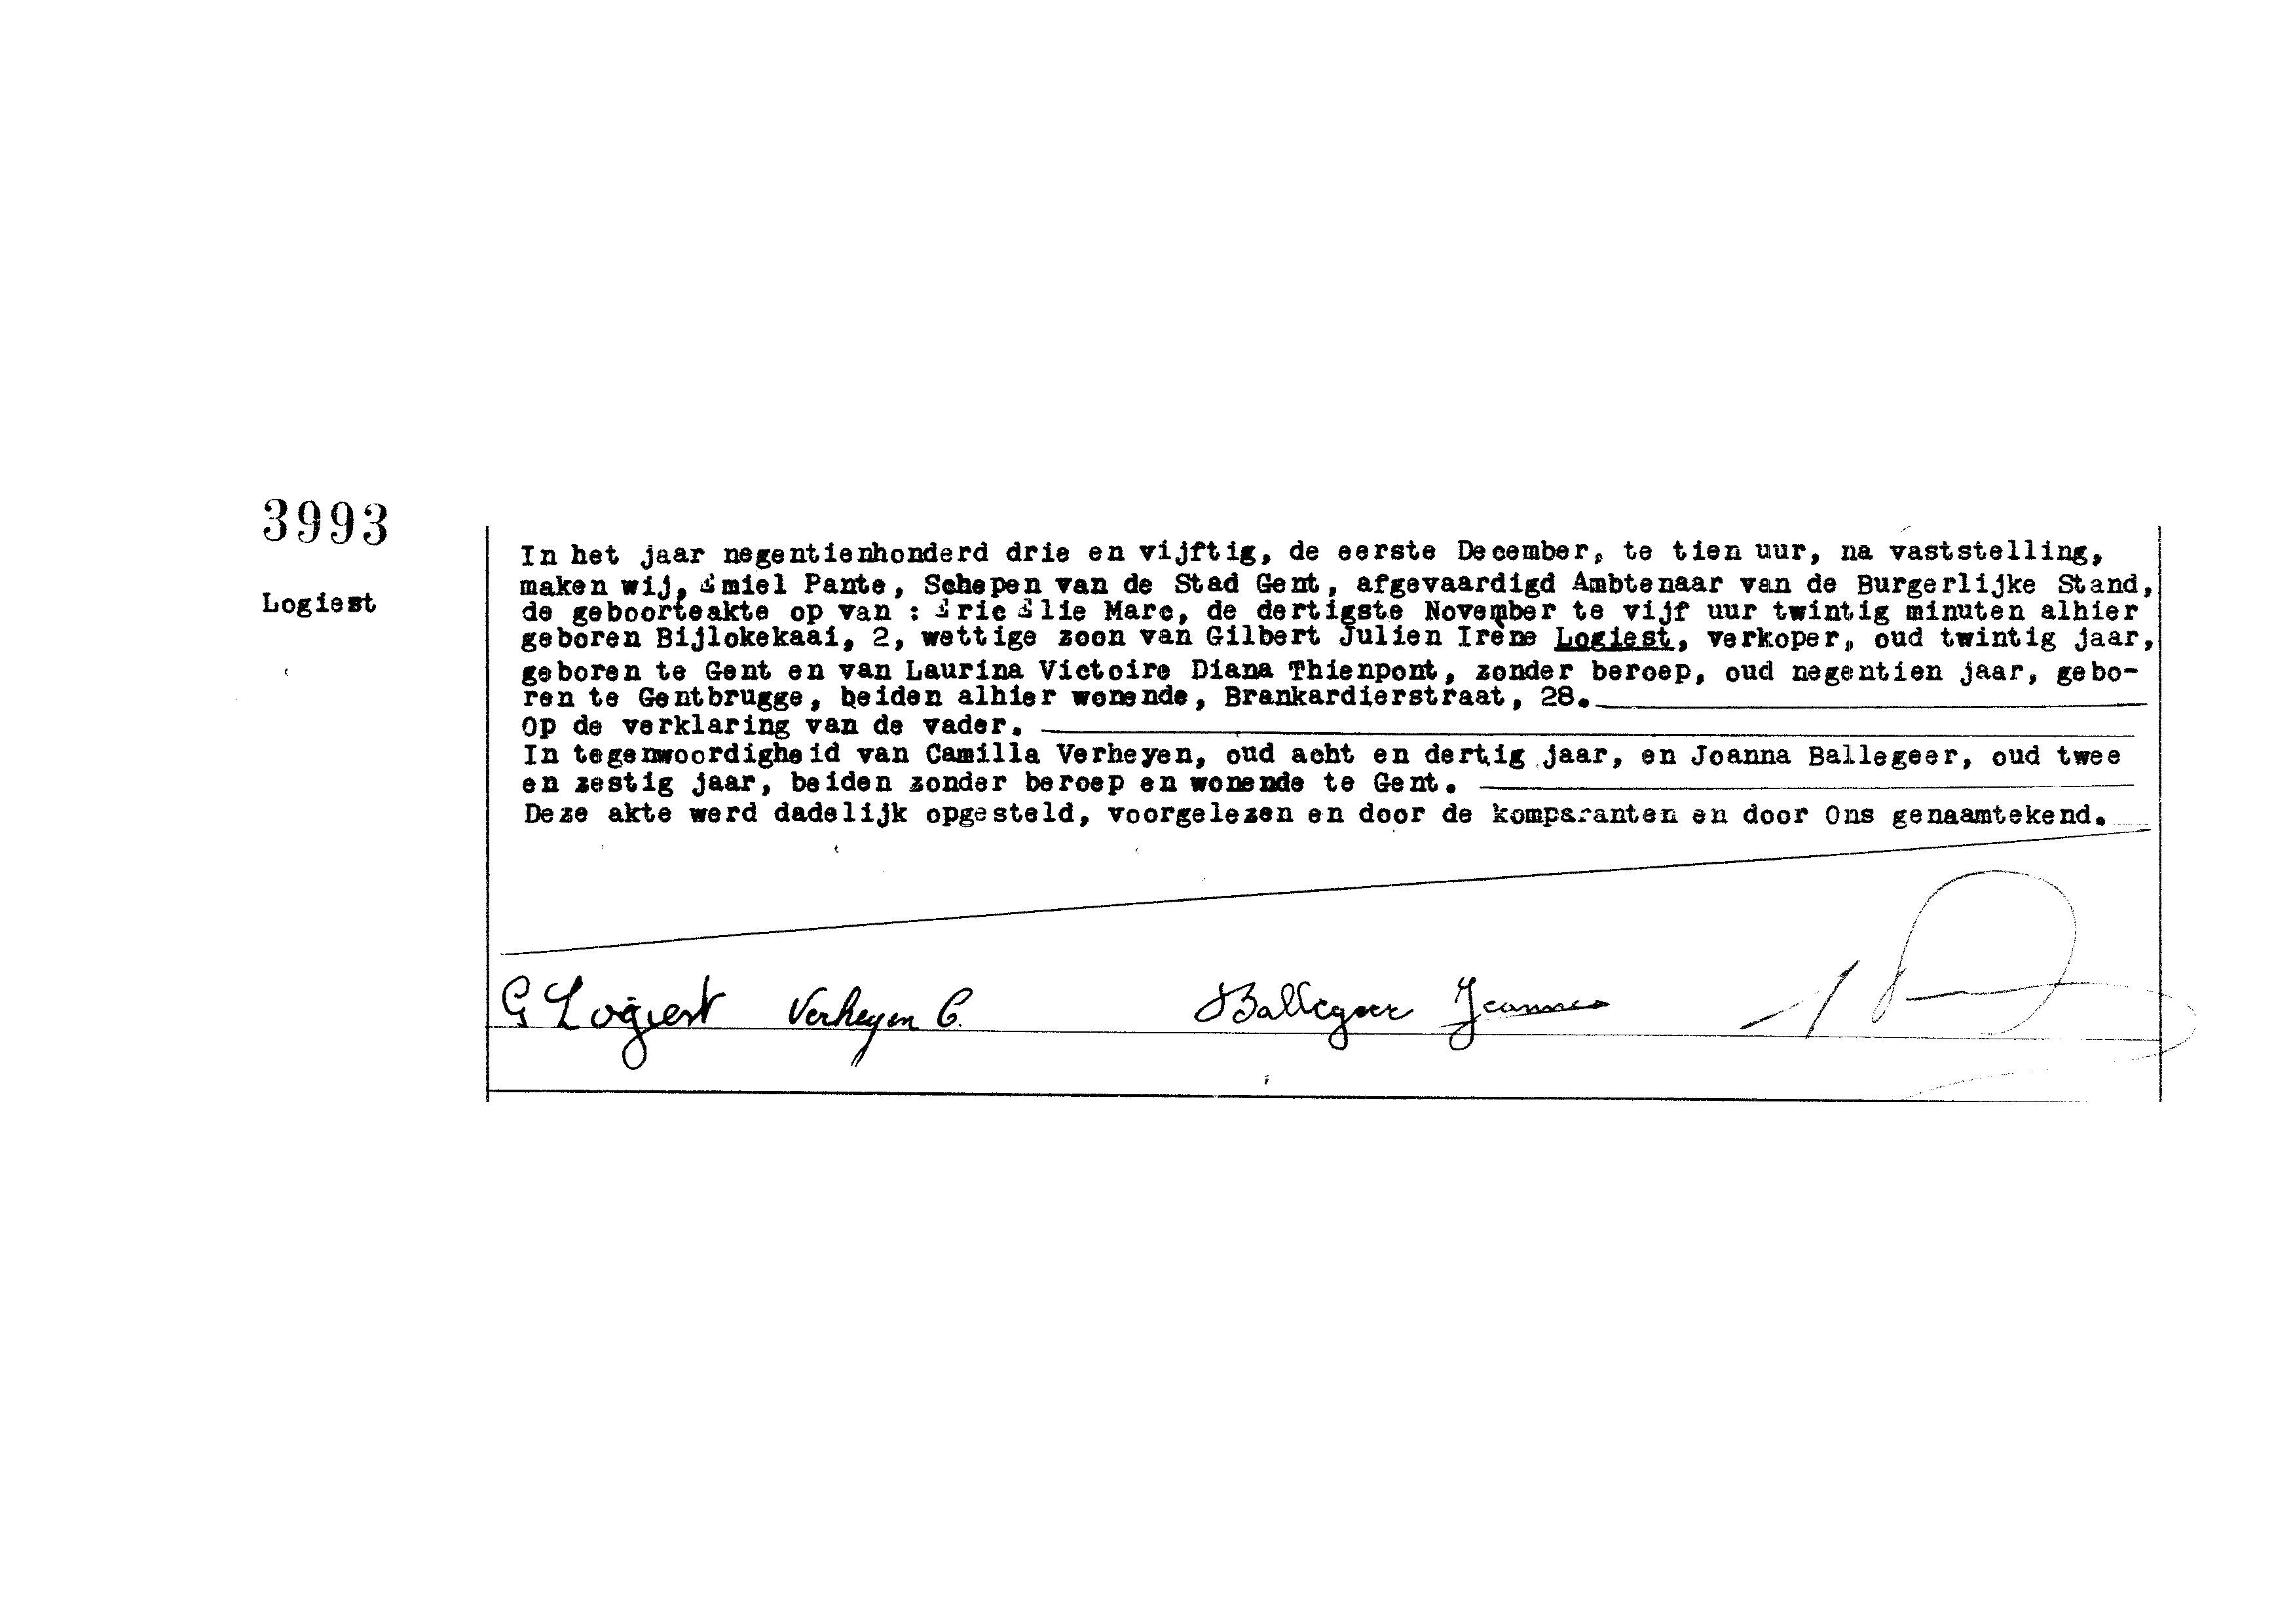 3993
Logiest
In het jaar negentienhonderd drie en vijftig, de eerste December, te tien uur, na vaststelling,
maken wij, Emiel Pante, Schepen van de Stad Gent, afgevaardigd Ambtenaar van de Burgerlijke Stand,
de geboorteakte op van : Eric Elie Marc, de dertigste November te vijf uur twintig minuten alhier
geboren Bijlokekaai, 2, wettige zoon van Gilbert Julien Irène Logiest, verkoper, oud twintig jaar,
geboren te Gent en van Laurina Victoire Diana Thienpont, zonder beroep, oud negentien jaar, gebo-
ren te Gentbrugge, beiden alhier wonende, Brankardierstraat, 28.
Op de verklaring van de vader.
In tegenwoordigheid van Camilla Verheyen, oud acht en dertig jaar, en Joanna Ballegeer, oud twee
en zestig jaar, beiden zonder beroep en wonende te Gent.
Deze akte werd dadelijk opgesteld, voorgelezen en door de komparanten en door Ons genaamtekend.
G Logiest Verheyen C. Ballegeer Jeanne